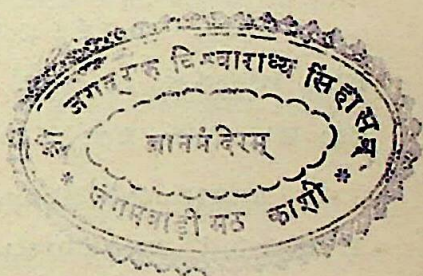 जगद्गुरु विश्वाराध्य सिंहासन
ज्ञानमंदिरम्
* जंगमवाडी मठ काशी *